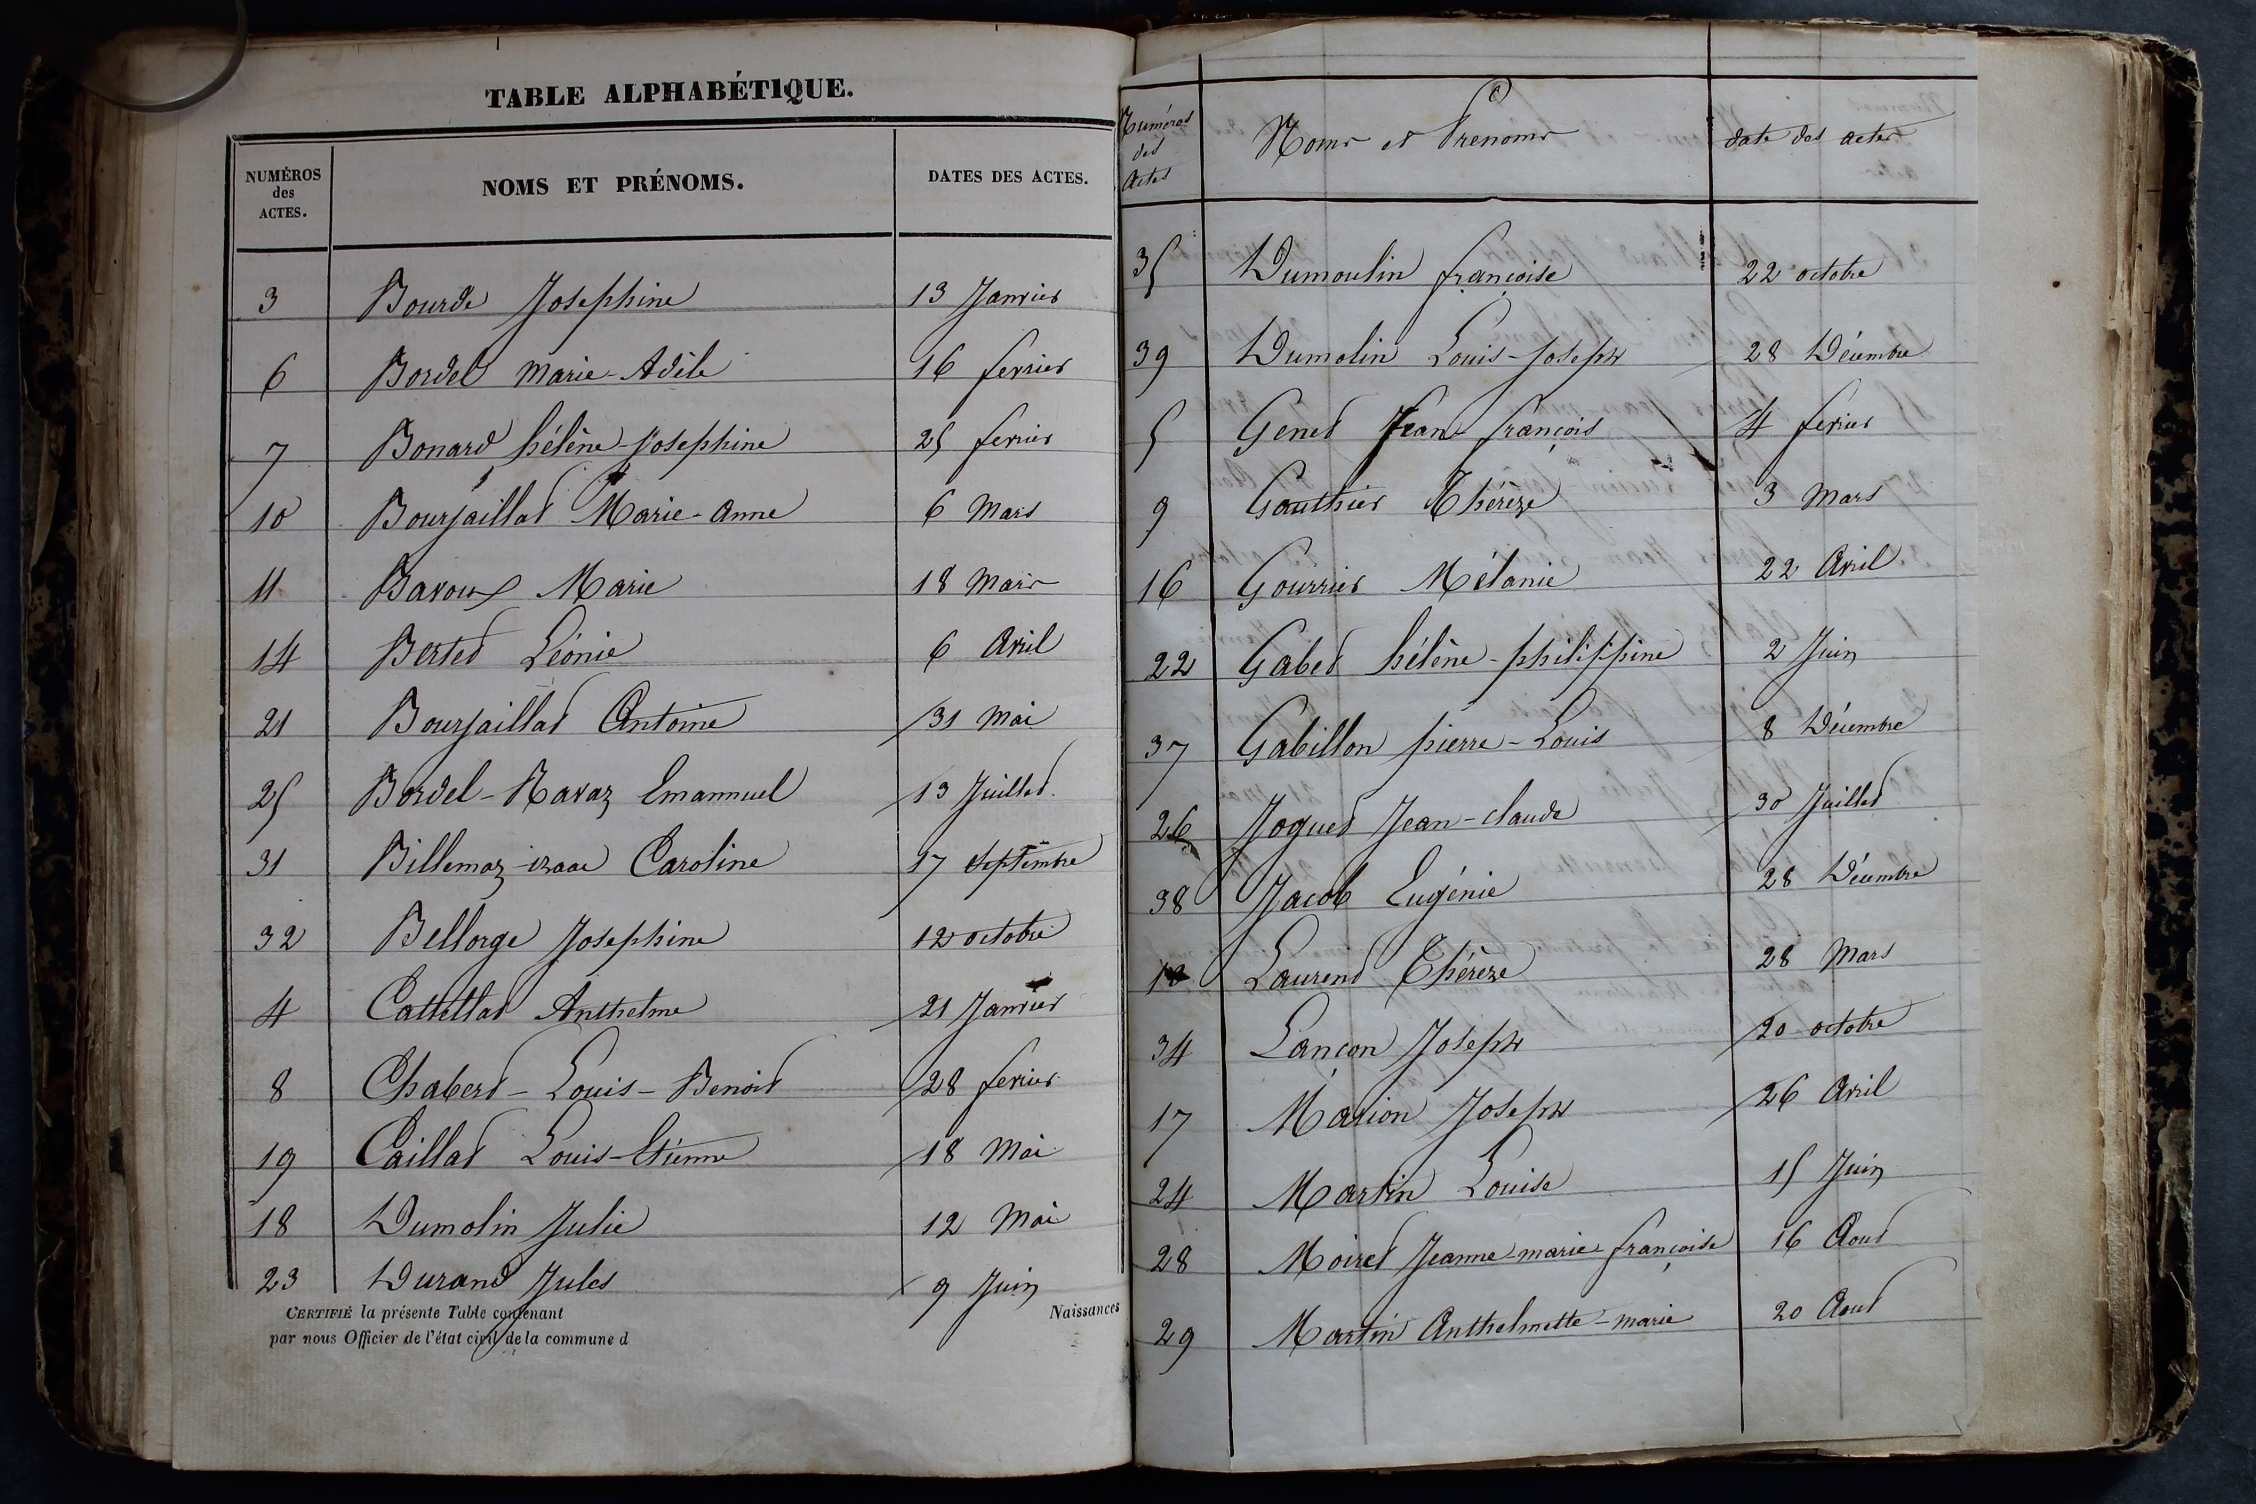 TABLE ALPHABÉTIQUE.
NUMÉROS des ACTES. NOMS ET PRÉNOMS. DATES DES ACTES.
3 Bourde Josephine 13 Janvier
6 Bordel Marie-Adèle 16 fevrier
7 Bonard hélène-Josephine 25 fevrier
10 Bourjaillat Marie-Anne 6 Mars
11 Bavoux Marie 18 Mars
14 Bertet Léonie 6 Avril
21 Bourjaillat Antoine 31 Mai
25 Bordel-Ravaz Emannuel 13 Juillet
31 Billemaz-izaac Caroline 17 Septembre
32 Bellorge Josephine 12 octobre
4 Cattillat Anthelme 21 Janvier
8 Chabert-Louis-Benoit 28 fevrier
19 Caillat Louis-Etienne 18 Mai
18 Dumolin Julie 12 Mai
23 Durand Jules 9 Juin
CERTIFIÉ la présente Table contenant Naissances
par nous Officier de l'état civil de la commune d
Numéros des Actes Noms et Prenoms date des actes
35 Dumoulin françoise 22 octobre
39 Dumolin Louis-Joseph 28 Décembre
5 Genet Jean-françois 4 fevrier
9 Gauthier Thérèze 3 Mars
16 Gourrier Mélanie 22 Avril
22 Gabet hélène-philippine 2 Juin
37 Gabillon pierre-Louis 8 Décembre
26 Joguet Jean-claude 30 Juillet
38 Jacob Eugénie 28 Décembre
Laurent Thérèze 28 Mars
34 Lançon Joseph 20 octobre
17 Marion Joseph 26 Avril
24 Martin Louise 15 Juin
28 Moiret Jeanne-marie-françoise 16 Aout
29 Martin Anthelmette-marie 20 Aout